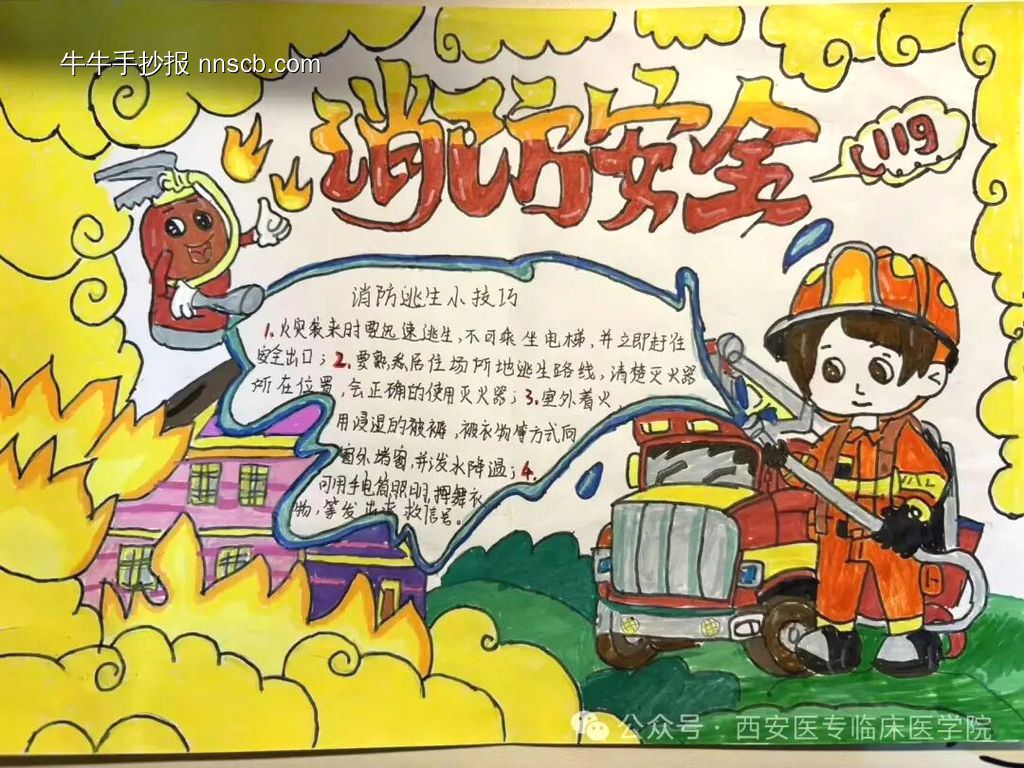 牛牛手抄报 nnscb.com
消防安全
119
消防逃生小技巧
1.火灾袭来时要迅速逃生,不可乘坐电梯,并立即赶往
安全出口;2.要熟悉居住场所地逃生路线,清楚灭火器
所在位置,会正确的使用灭火器;3.室外着火,
用浸湿的被褥,被衣物等方式向
窗外堵窗,并泼水降温;4.
可用手电筒照明,挥舞衣
物,等发出求救信号。
公众号·西安医专临床医学院